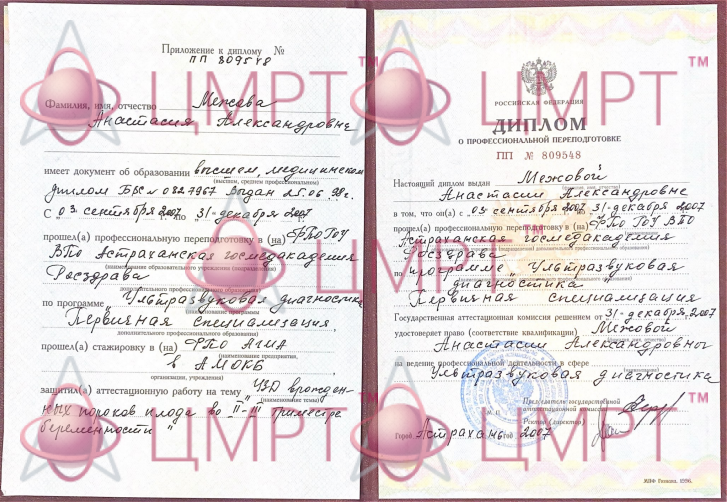 Приложение к диплому №
ПП 809548
Фамилия, имя, отчество Межова
Анастасия Александровне
имеет документ об образовании высшем, медицинском
(высшем, среднем профессиональном)
диплом БВС № 0827967 Выдан 25.06.98г.
С „03„ сентября 2007 г. по „31„ декабря 2007.
прошел(а) профессиональную переподготовку в (на) ФПО ГОУ
ВПО Астраханская госмедакадемия
(наименование образовательного учреждения (подразделения)
Росздрава
дополнительного профессионального образования)
по программе „Ультразвуковая диагностика
(наименование программы
Первичная специализация
дополнительного профессионального образования)
прошел(а) стажировку в (на) ФПО АГМА
(наименование предприятия,
в АМОКБ
организации, учреждения)
защитил(а) аттестационную работу на тему „УЗД врожден-
(наименование темы)
ных пороков плода во II-III триместре
беременности"
РОССИЙСКАЯ ФЕДЕРАЦИЯ
ДИПЛОМ
О ПРОФЕССИОНАЛЬНОЙ ПЕРЕПОДГОТОВКЕ
ПП № 809548
Настоящий диплом выдан Межовой
Анастасии Александровне
в том, что он(а) с „03„ сентября 2007 по „31„ декабря 2007
прошел(а) профессиональную переподготовку в (на) ФПО ГОУ ВПО
Астраханская госмедакадемия
Росздрава
по программе „Ультразвуковая
диагностика"
Первичная специализация
Государственная аттестационная комиссия решением от „31„ декабря, 2007
удостоверяет право (соответствие квалификации) Межовой
Анастасии Александровны
на ведение профессиональной деятельности в сфере
Ультразвуковая диагностика
Председатель государственной
аттестационной комиссии
М.П.
Ректор (директор)
Город Астрахань год 2007
МПФ Гознака. 1996.
ЦМРТ™
ЦМРТ™
ЦМРТ™
ЦМРТ™
ЦМРТ™